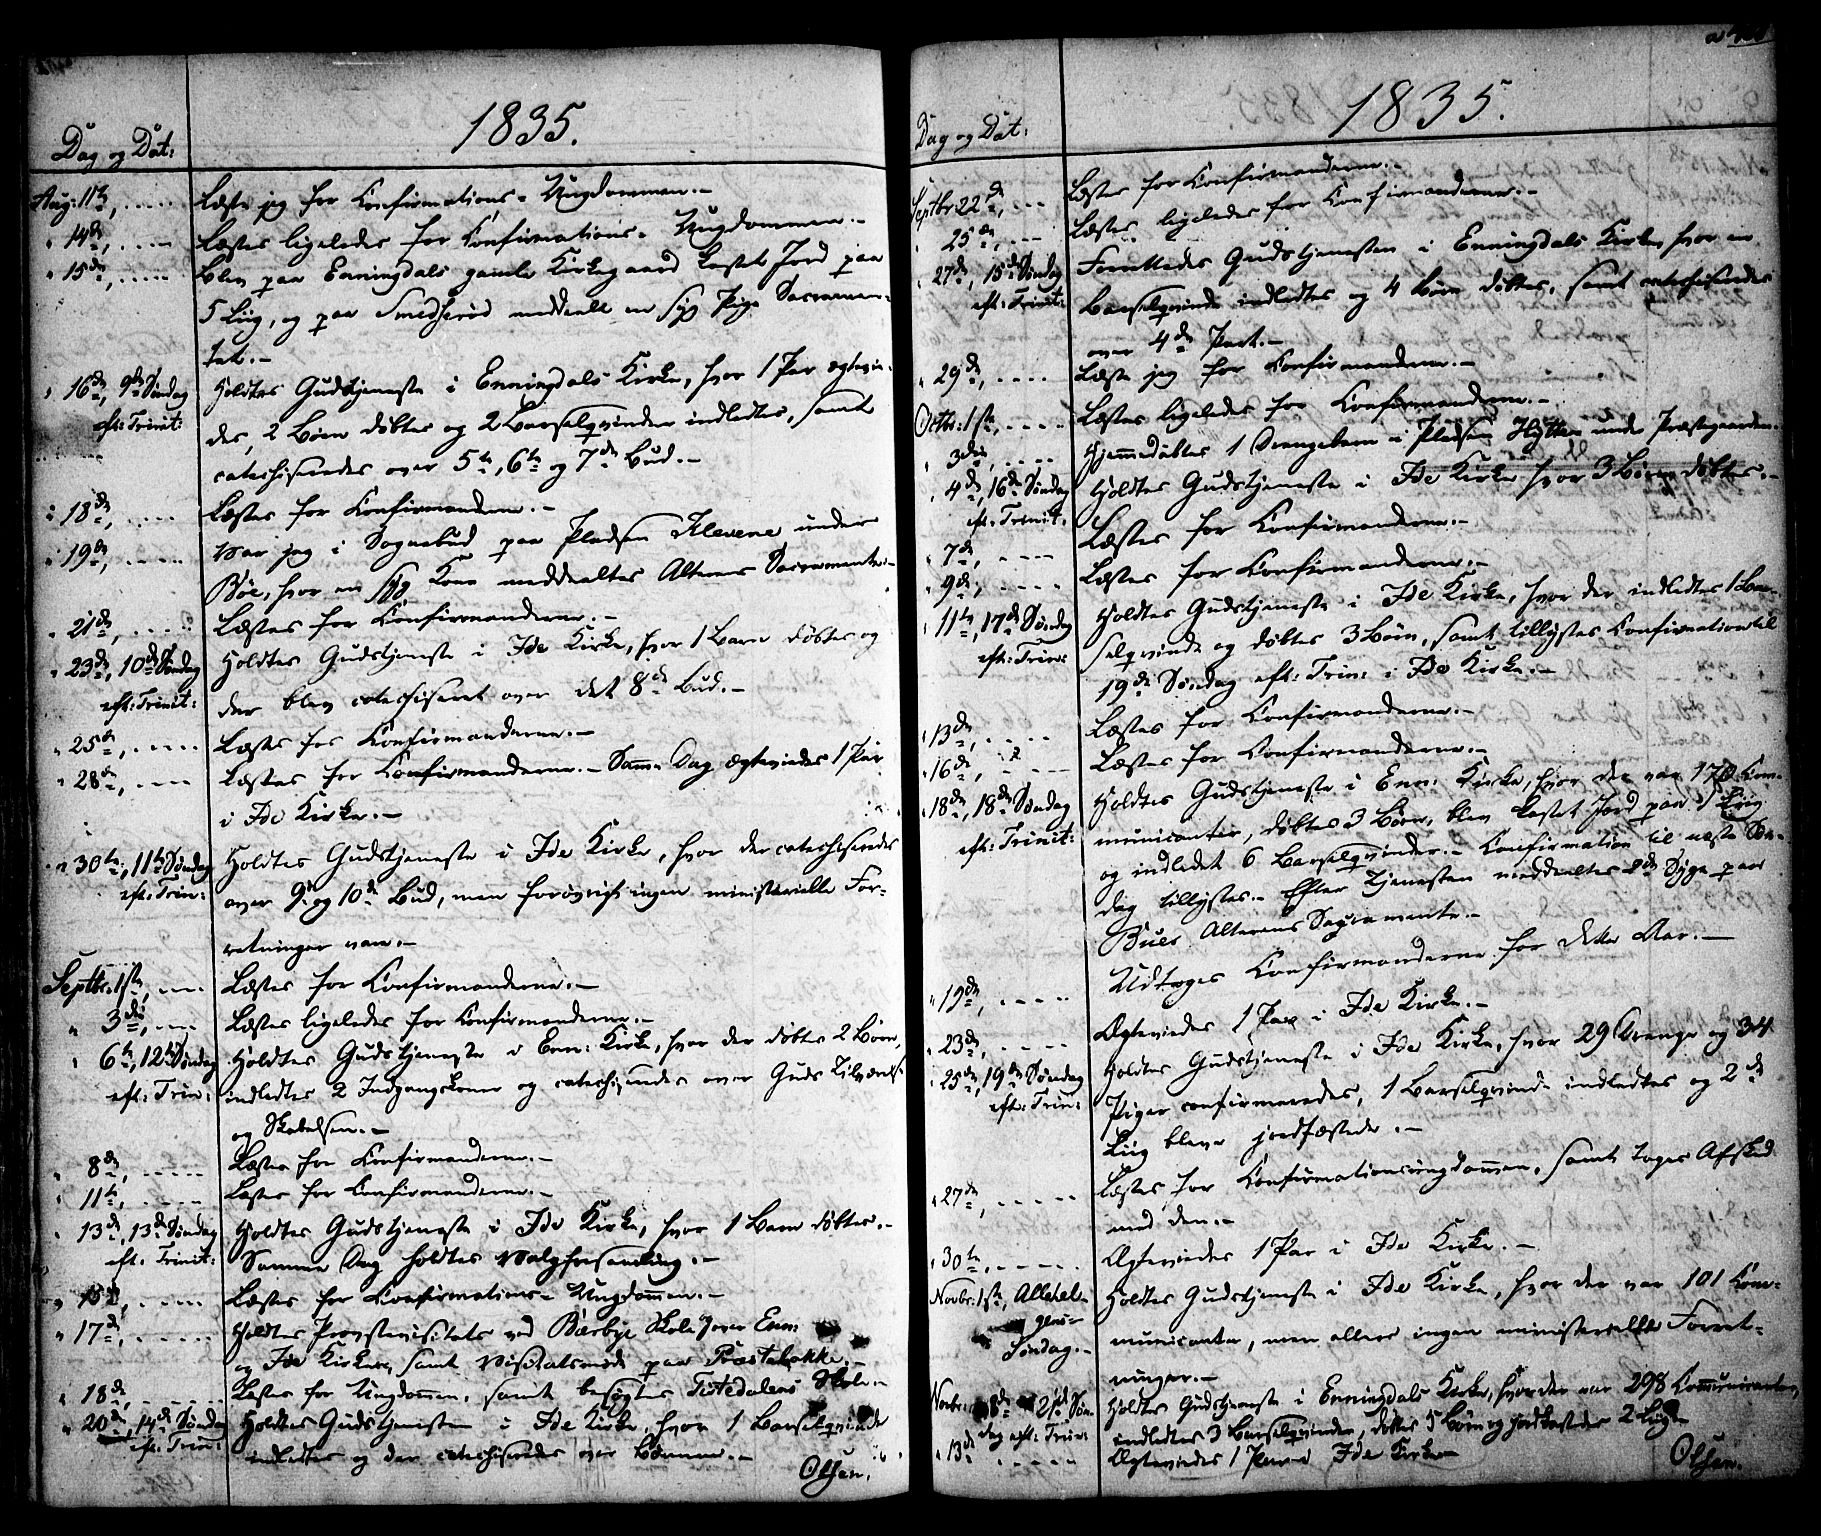 1835.
Dag og Dat:
Aug: 11te, Læste jeg for Confirmations-Ungdommen.-
" 14de, Læstes ligeledes for Confirmations-Ungdommen.-
" 15de, Blev paa Enningdals gamle Kirkegaard kastet Jord paa
5 Liig, og paa Smedserød meddeelt en syg Pige Sacramen-
tet.-
" 16de, 9de Søndag Holdtes Gudstjeneste i Enningdals Kirke, hvor 1 Par ægtevie-
eft: Trinit: des, 2 Børn døbtes og 2 Barselqvinder indledtes, samt
catechiseredes over 5te, 6te og 7de Bud.-
" 18de, Læstes for Confirmanderne.-
" 19de, Var jeg i Sognebud paa Pladsen Klevene under
Bøe, hvor en syg Kone meddeeltes Alterens Sacramente.-
" 21de, Læstes for Confirmanderne.-
" 23de, 10de Søndag Holdtes Gudstjeneste i Ide Kirke, hvor 1 Barn døbtes og
eft: Trinit: der blev catechiseret over det 8de Bud.-
" 25de, Læstes for Confirmanderne.-
" 28de, Læstes for Confirmanderne.- Samme Dag ægteviedes 1 Par
i Ide Kirke.-
" 30te, 11te Søndag Holdtes Gudstjeneste i Ide Kirke, hvor der catechiseredes
eft: Trin: over 9de og 10de Bud, men forøvrigt ingen ministerielle For-
retninger vare.-
Septbr: 1ste, Læstes for Confirmanderne.-
" 3die, Læstes ligeledes for Confirmanderne.-
" 6te, 12te Søndag Holdtes Gudstjeneste i Enn: Kirke, hvor der døbtes 2 Børn,
eft: Trin: indledtes 2 Indgangskoner og catechiseredes over Guds Tilværelse
og Skabelsen.-
" 8de, Læstes for Confirmanderne.-
" 11te, Læstes for Confirmanderne.-
" 13de, 13de Søndag Holdtes Gudstjeneste i Ide Kirke, hvor 1 Barn døbtes.-
eft: Trinit: Samme Dag holdtes Valgforsamling.-
" 15de, Læstes for Confirmations-Ungdommen.-
" 17de, Holdtes Provstevisitats ved Berby Skole over Enn:
og Ide Kirker, samt Visitatsmøde paa Præstebakke.-
" 18de, Læstes for Ungdommen, samt besøgtes Tistedalens Skole.-
" 20de, 14de Søndag Holdtes Gudstjenesten i Ide Kirke, hvor 1 Barselqvinde
eft: Trin: indledtes og der catechiseredes over Bønnen.-
Olsen.
1835.
Dag og Dat:
Septbr 22de, Læstes for Confirmanderne.-
" 25de, Læstes ligeledes for Confirmanderne.-
" 27de, 15de Søndag Forrettedes Gudstjenesten i Enningdals Kirke, hvor en
eft: Trinit: Barselqvinde indledtes og 4 Børn døbtes, samt catechiseredes
over 4de Part.-
" 29de, Læste jeg for Confirmanderne.-
Octbr: 1ste, Læstes ligeledes for Confirmanderne.-
" 3die, Hjemmedøbtes 1 Drengebarn i Pladsen Hytten under Præstegaarden.
" 4de, 16de Søndag Holdtes Gudstjeneste i Ide Kirke hvor 3 Børn døbtes.-
eft: Trinit:
" 7de, Læstes for Confirmanderne.-
" 9de, Læstes for Confirmanderne.-
" 11te, 17de Søndag Holdtes Gudstjeneste i Ide Kirke, hvor der indledtes 1 Bar-
eft: Trin: selqvinde og døbtes 3 Børn, samt tillystes Confirmation til
19de Søndag eft: Trin: i Ide Kirke.-
" 13de, Læstes for Confirmanderne.-
" 16de, Læstes for Confirmanderne.-
" 18de, 18de Søndag Holdtes Gudstjeneste i Enn: Kirke, hvor der var 170 Com-
eft: Trinit: municanter, døbtes 3 Børn, blev kastet Jord paa 1 Liig
og indledet 6 Barselqvinder.- Confirmation til næste Søn-
dag tillystes.- Efter Tjenesten meddeeltes 2de Syge paa
Buer Alterens Sacramente.-
" 19de, Udtoges Confirmanderne for dette Aar.-
" 23de, Ægteviedes 1 Par i Ide Kirke.-
" 25de, 19de Søndag Holdtes Gudstjeneste i Ide Kirke, hvor 29 Drenge og 34
eft: Trin: Piger confirmeredes, 1 Barselqvinde indledtes og 2de
Liig bleve jordfæstede.-
" 27de, Læstes for Confirmationsungdommen, samt toges Afsked
med den.-
" 30te, Ægteviedes 1 Par i Ide Kirke.-
Novbr: 1ste, Allehel- Holdtes Gudstjeneste i Ide Kirke, hvor der var 101 Com-
gens- municanter, men ellers ingen ministerielle Forret-
Søndag.- ninger.-
Novbr: 8de 21de Søn- Holdtes Gudstjeneste i Enningdals Kirke, hvor der var 298 Communicanter,
dag eft: Trin: indledtes 3 Barselqvinder, døbtes 5 Børn og jordkastedes 2 Liig.-
" 13de Ægteviedes 1 Par i Ide Kirke.-
Olsen.